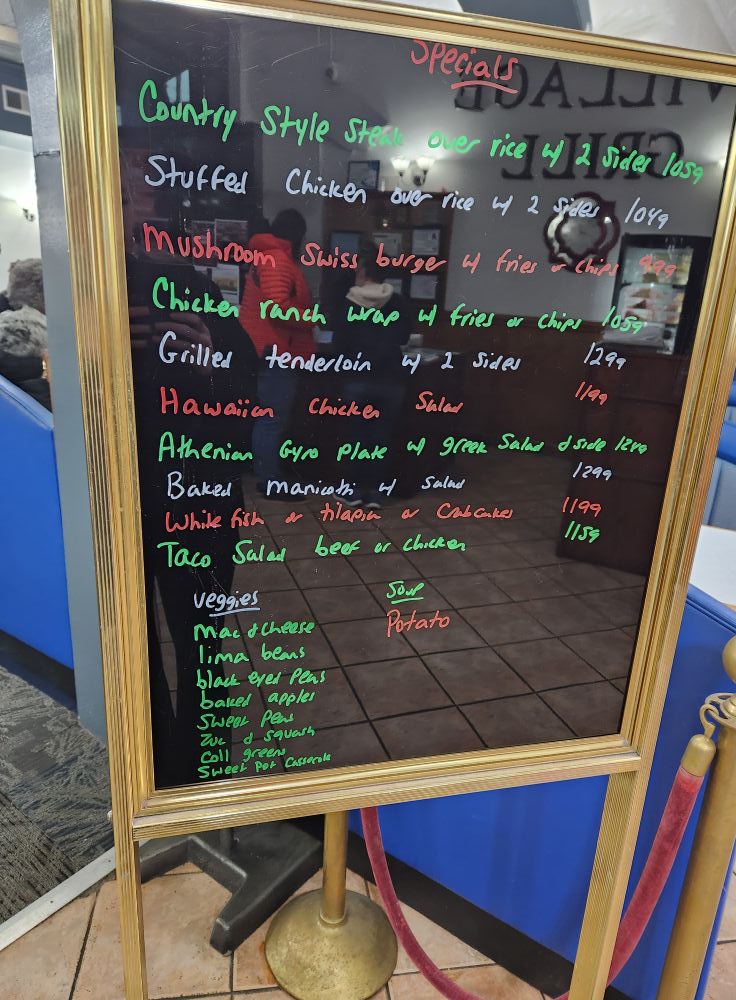 Specials
Country Style Steak over rice w/ 2 sides 1059
Stuffed Chicken over rice w/ 2 sides 1049
Mushroom Swiss burger w/ fries or chips 999
Chicken ranch wrap w/ fries or chips 1059
Grilled tenderloin w/ 2 sides 1299
Hawaiian Chicken Salad 1199
Athenian Gyro Plate w/ greek Salad & side 1299
Baked manicotti w/ salad 1299
White fish or tilapia or Crabcakes 1199
Taco Salad beef or chicken 1159
veggies
Mac & cheese
lima beans
black eyed peas
baked apples
Sweet Peas
Zuc & squash
Coll greens
Sweet Pot Casserole
Soup
Potato
VILLAGE
GRILL